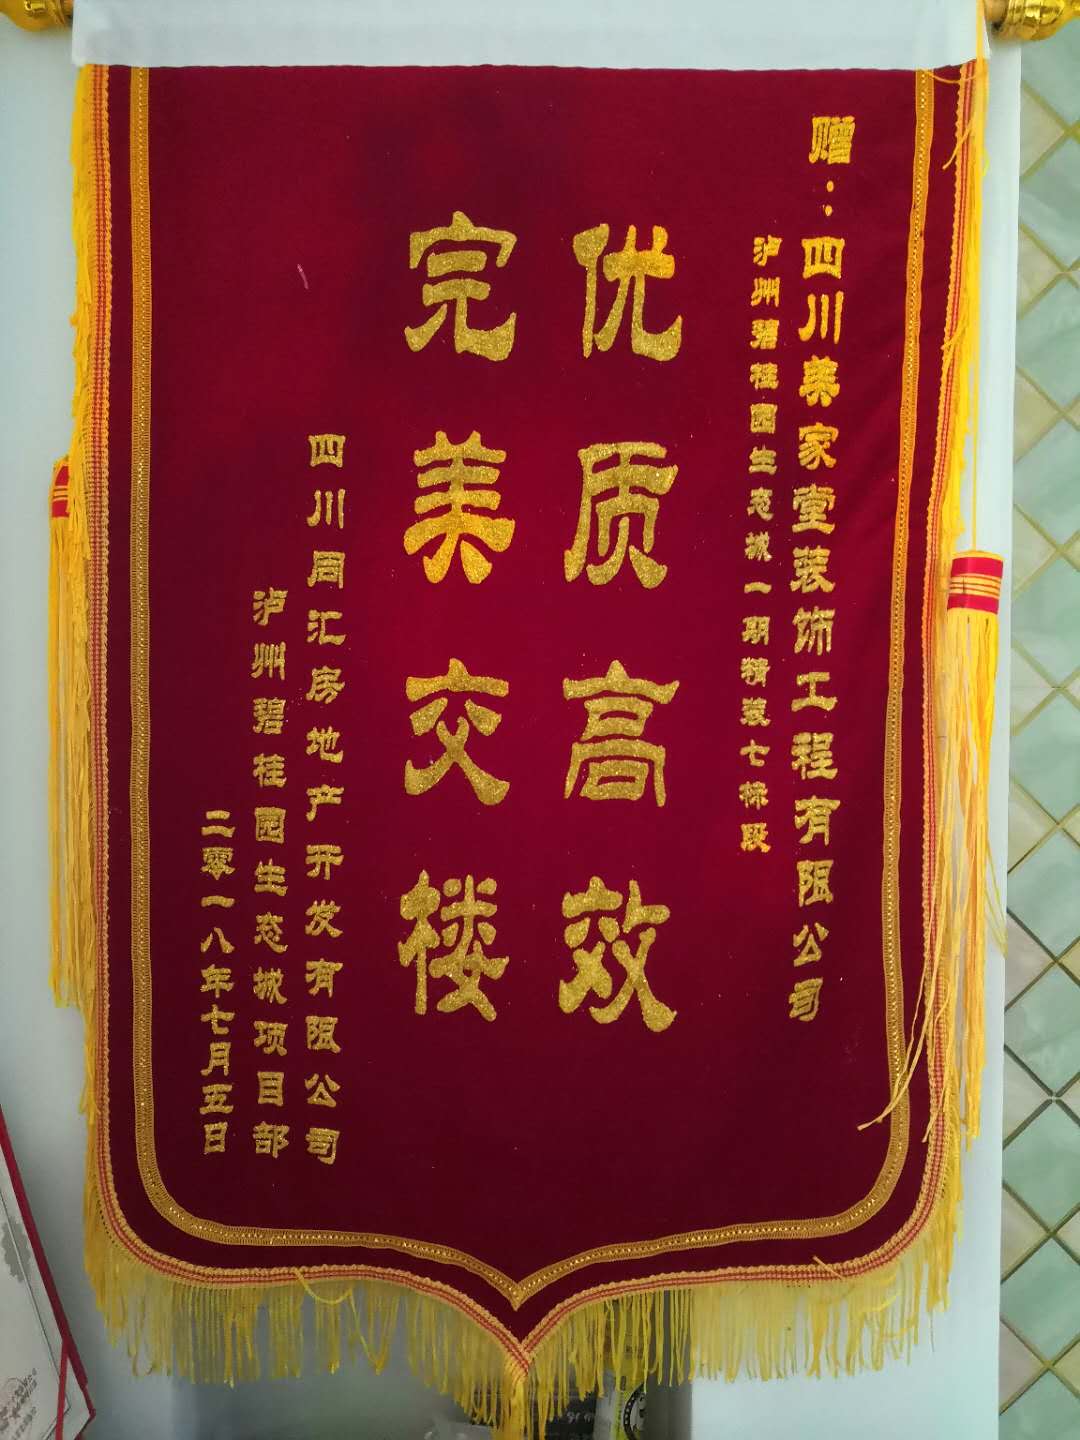 赠：四川美家堂装饰工程有限公司
泸州碧桂园生态城一期精装七栋段
优质高效
完美交楼
四川同汇房地产开发有限公司
泸州碧桂园生态城项目部
二零一八年七月五日